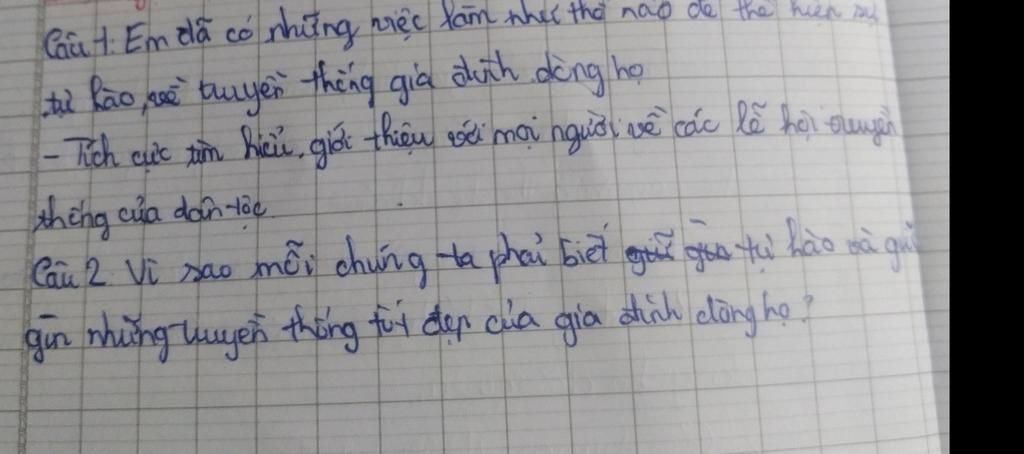 Câu 1. Em đã có những việc làm như thế nào để thể hiện sự
tự hào về truyền thống gia đình dòng họ
- Tích cực tìm hiểu, giới thiệu với mọi người về các lễ hội truyền
thống của dân tộc.
Câu 2. Vì sao mỗi chúng ta phải biết giữ gìn tự hào và giữ
gìn những truyền thống tốt đẹp của gia đình dòng họ?